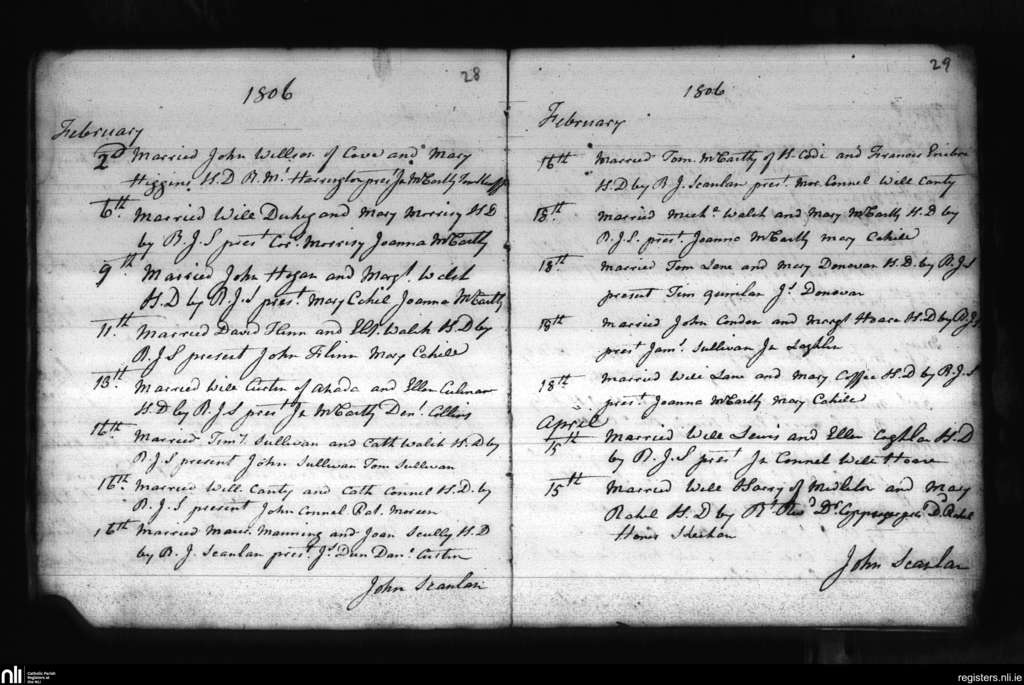 28
1806
February
2D Married John Willson of Cove and Mary
Higgins H.D R. Mr. Harrington prest Jn McCarthy
6th. Married Will Duhy and Mary Morrisy H.D
by R. J. S prest Cor. Morrisy Joanna McCarthy
9th Married John Hogan and Margt. Welsh
H.D by R.J.S prest. Mary Cahil Joanna McCarthy
11th Married David Flinn and Walsh H.D by
R.J.S present John Flinn Mary Cahill
13th. Married Will Curten of Ahada and Ellen
H.D by R.J.S prest Jn McCarthy Den. Collins
16th. Married Timy. Sullivan and Cath Walsh H.D by
R.J.S present John Sullivan Tom Sullivan
16th. Married Will. Canty and Cath Connel H.D. by
R.J.S present John Connel Pat.
16th Married Maur. Manning and Joan Scully H.D
by R. J. Scanlan prest. Dan. Curten
John Scanlan
29
1806
February
16th Married Tom. McCarthy of and Frances
H.D by R J. Scanlan prest. Mor. Connel Will Canty
18th. Married Michl Walsh and Mary McCarthy H.D by
R.J.S. prest. Joanna McCarthy Mary Cahill
18th. Married Tom Lane and Mary Donovan H.D. by R.J.S
present Tim Js Donovan
18th Married John Condon and Margt Hoare H.D by R.J.S
prest Jams. Sullivan Jn Coghlan
18th Married Will Lane and Mary Coffee H.D by R.J.S
prest. Joanna McCarthy Mary Cahill
April
15th Married Will Lewis and Ellen Coghlan H.D
by R.J.S prest Jn Connel Will Hoare
15th Married Will Harry of and Mary
H.D by Rt. Revd Dr.
John Scanlan
nli
Catholic Parish
Registers at
the NLI
registers.nli.ie